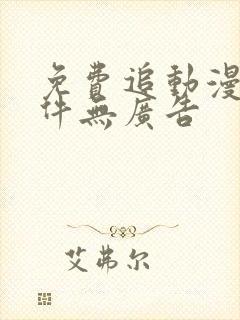 免費追動漫
件無廣告
艾弗尔